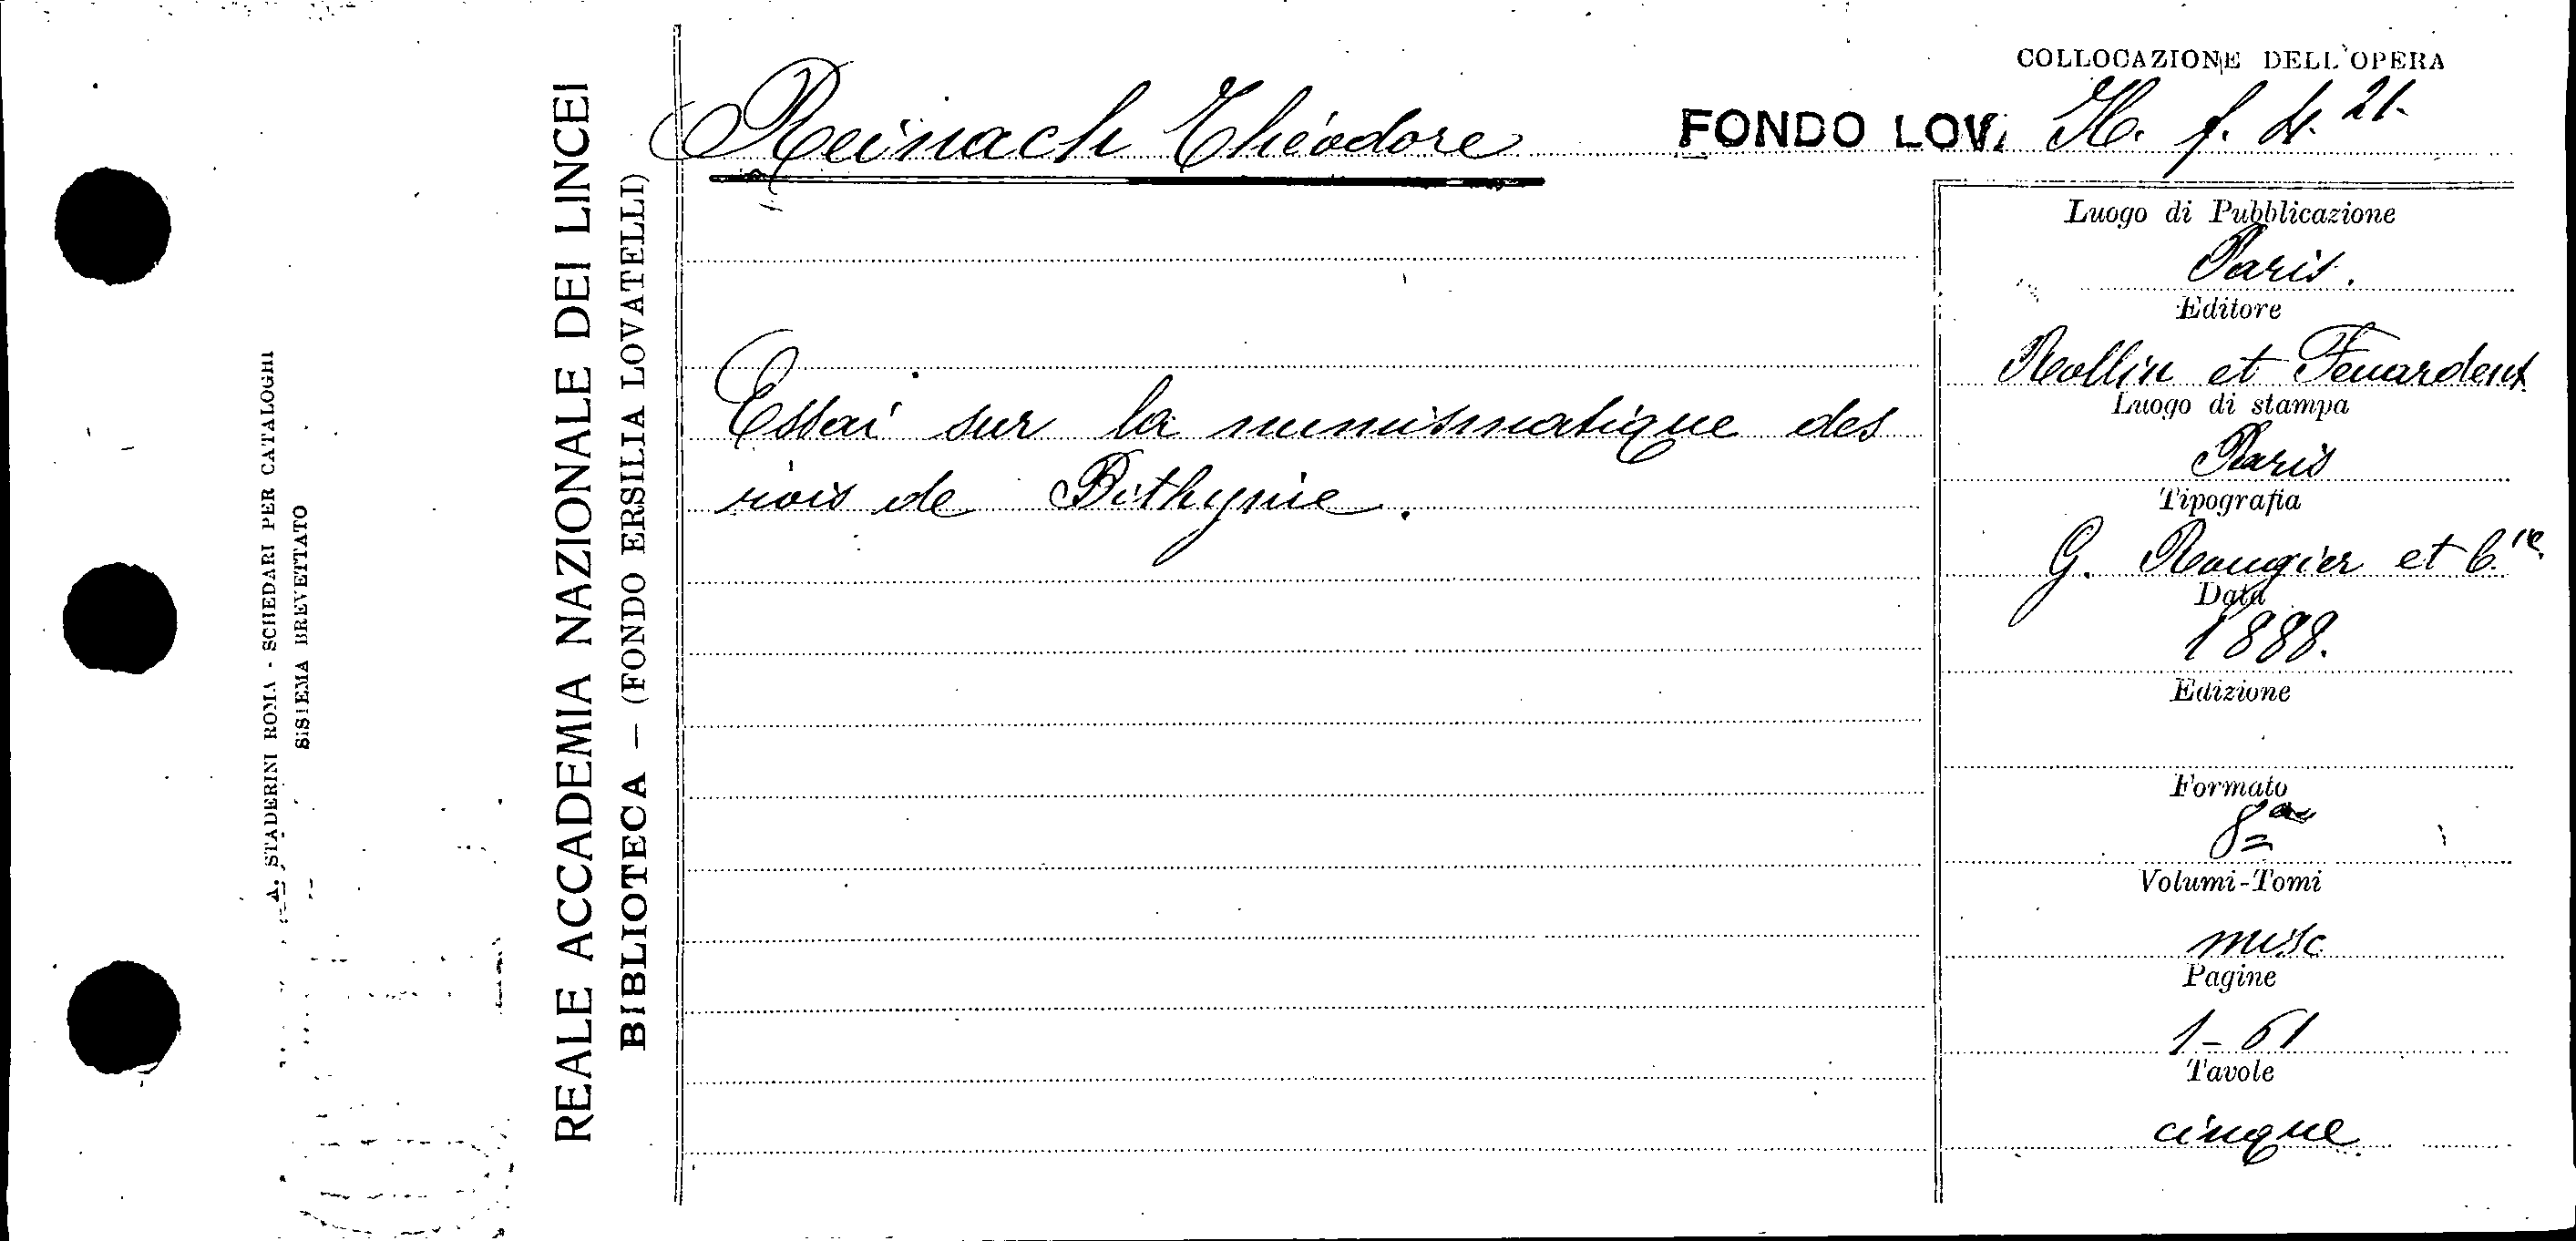 A. STADERINI ROMA - SCHEDARI PER CATALOGHI
SISTEMA BREVETTATO
REALE ACCADEMIA NAZIONALE DEI LINCEI
BIBLIOTECA — (FONDO ERSILIA LOVATELLI)
COLLOCAZIONE DELL'OPERA
Reinach Théodore
FONDO LOV. H. f. 4. 21.
Essai sur la numismatique des
rois de Bithynie.
Luogo di Pubblicazione
Paris.
Editore
Rollin et Feuardent
Luogo di stampa
Paris
Tipografia
G. Rougier et C.ie
Data
1888.
Edizione
Formato
8º
Volumi-Tomi
misc
Pagine
1-61
Tavole
cinque